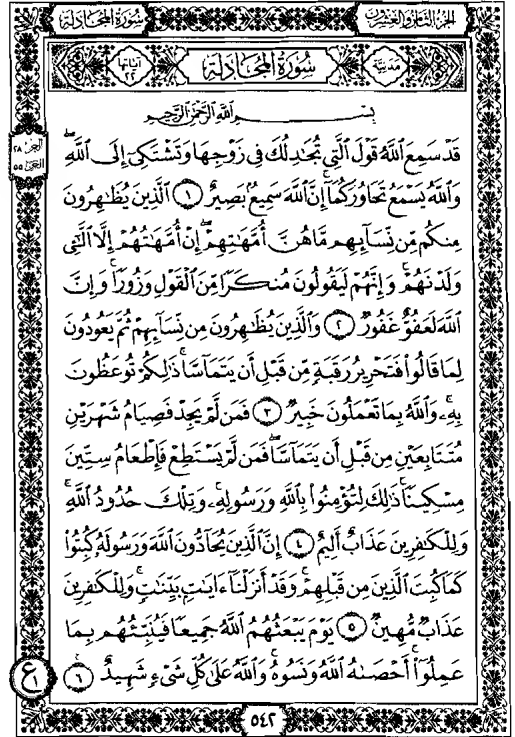 الجزء الثامن والعشرون
سُورَةُ المُجَادلَة
مَدَنِيَّة
سُورَةُ المُجَادلَة
آيَاتُهَا ٢٢
بِسْمِ اللَّهِ الرَّحْمَٰنِ الرَّحِيمِ
الجزء ٢٨
الحزب ٥٥
قَدْ سَمِعَ اللَّهُ قَوْلَ الَّتِي تُجَادِلُكَ فِي زَوْجِهَا وَتَشْتَكِي إِلَى اللَّهِ
وَاللَّهُ يَسْمَعُ تَحَاوُرَكُمَا إِنَّ اللَّهَ سَمِيعٌ بَصِيرٌ ١ الَّذِينَ يُظَاهِرُونَ
مِنكُم مِّن نِّسَائِهِم مَّا هُنَّ أُمَّهَاتِهِمْ إِنْ أُمَّهَاتُهُمْ إِلَّا اللَّائِي
وَلَدْنَهُمْ وَإِنَّهُمْ لَيَقُولُونَ مُنكَرًا مِّنَ الْقَوْلِ وَزُورًا وَإِنَّ
اللَّهَ لَعَفُوٌّ غَفُورٌ ٢ وَالَّذِينَ يُظَاهِرُونَ مِن نِّسَائِهِمْ ثُمَّ يَعُودُونَ
لِمَا قَالُوا فَتَحْرِيرُ رَقَبَةٍ مِّن قَبْلِ أَن يَتَمَاسَّا ذَٰلِكُمْ تُوعَظُونَ
بِهِ وَاللَّهُ بِمَا تَعْمَلُونَ خَبِيرٌ ٣ فَمَن لَّمْ يَجِدْ فَصِيَامُ شَهْرَيْنِ
مُتَتَابِعَيْنِ مِن قَبْلِ أَن يَتَمَاسَّا فَمَن لَّمْ يَسْتَطِعْ فَإِطْعَامُ سِتِّينَ
مِسْكِينًا ذَٰلِكَ لِتُؤْمِنُوا بِاللَّهِ وَرَسُولِهِ وَتِلْكَ حُدُودُ اللَّهِ
وَلِلْكَافِرِينَ عَذَابٌ أَلِيمٌ ٤ إِنَّ الَّذِينَ يُحَادُّونَ اللَّهَ وَرَسُولَهُ كُبِتُوا
كَمَا كُبِتَ الَّذِينَ مِن قَبْلِهِمْ وَقَدْ أَنزَلْنَا آيَاتٍ بَيِّنَاتٍ وَلِلْكَافِرِينَ
عَذَابٌ مُّهِينٌ ٥ يَوْمَ يَبْعَثُهُمُ اللَّهُ جَمِيعًا فَيُنَبِّئُهُم بِمَا
عَمِلُوا أَحْصَاهُ اللَّهُ وَنَسُوهُ وَاللَّهُ عَلَىٰ كُلِّ شَيْءٍ شَهِيدٌ ٦
ع ١
٥٤٢